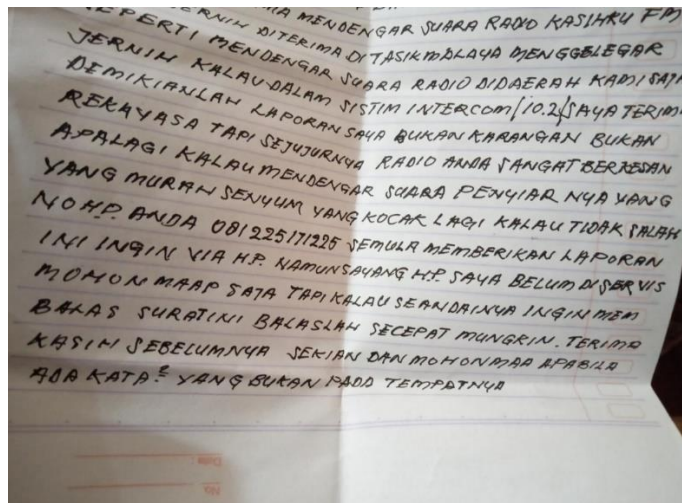 MENDENGAR SUARA RADIO KASIHKU FM
JERNIH DITERIMA DI TASIKMALAYA MENGGELEGAR
SEPERTI MENDENGAR SUARA RADIO DIDAERAH KAMI SAJA
JERNIH KALAU DALAM SISTIM INTERCOM/10.2/SAYA TERIMA
DEMIKIANLAH LAPORAN SAYA BUKAN KARANGAN BUKAN
REKAYASA TAPI SEJUJURNYA RADIO ANDA SANGAT BERKESAN
APALAGI KALAU MENDENGAR SUARA PENYIAR NYA YANG
YANG MURAH SENYUM YANG KOCAK LAGI KALAU TIDAK SALAH
NO HP. ANDA 081225171225 SEMULA MEMBERIKAN LAPORAN
INI INGIN VIA HP. NAMUN SAYANG HP. SAYA BELUM DI SERVIS
MOHON MAAP SAJA TAPI KALAU SEANDAINYA INGIN MEM
BALAS SURAT INI BALASLAH SECEPAT MUNGKIN. TERIMA
KASIH SEBELUMNYA SEKIAN DAN MOHON MAA APABILA
ADA KATA² YANG BUKAN PADA TEMPATNYA
Date:
No: